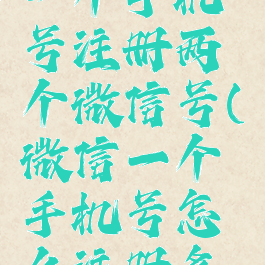 个手机
号注册两
个微信号(
微信一个
手机号怎
么注册多